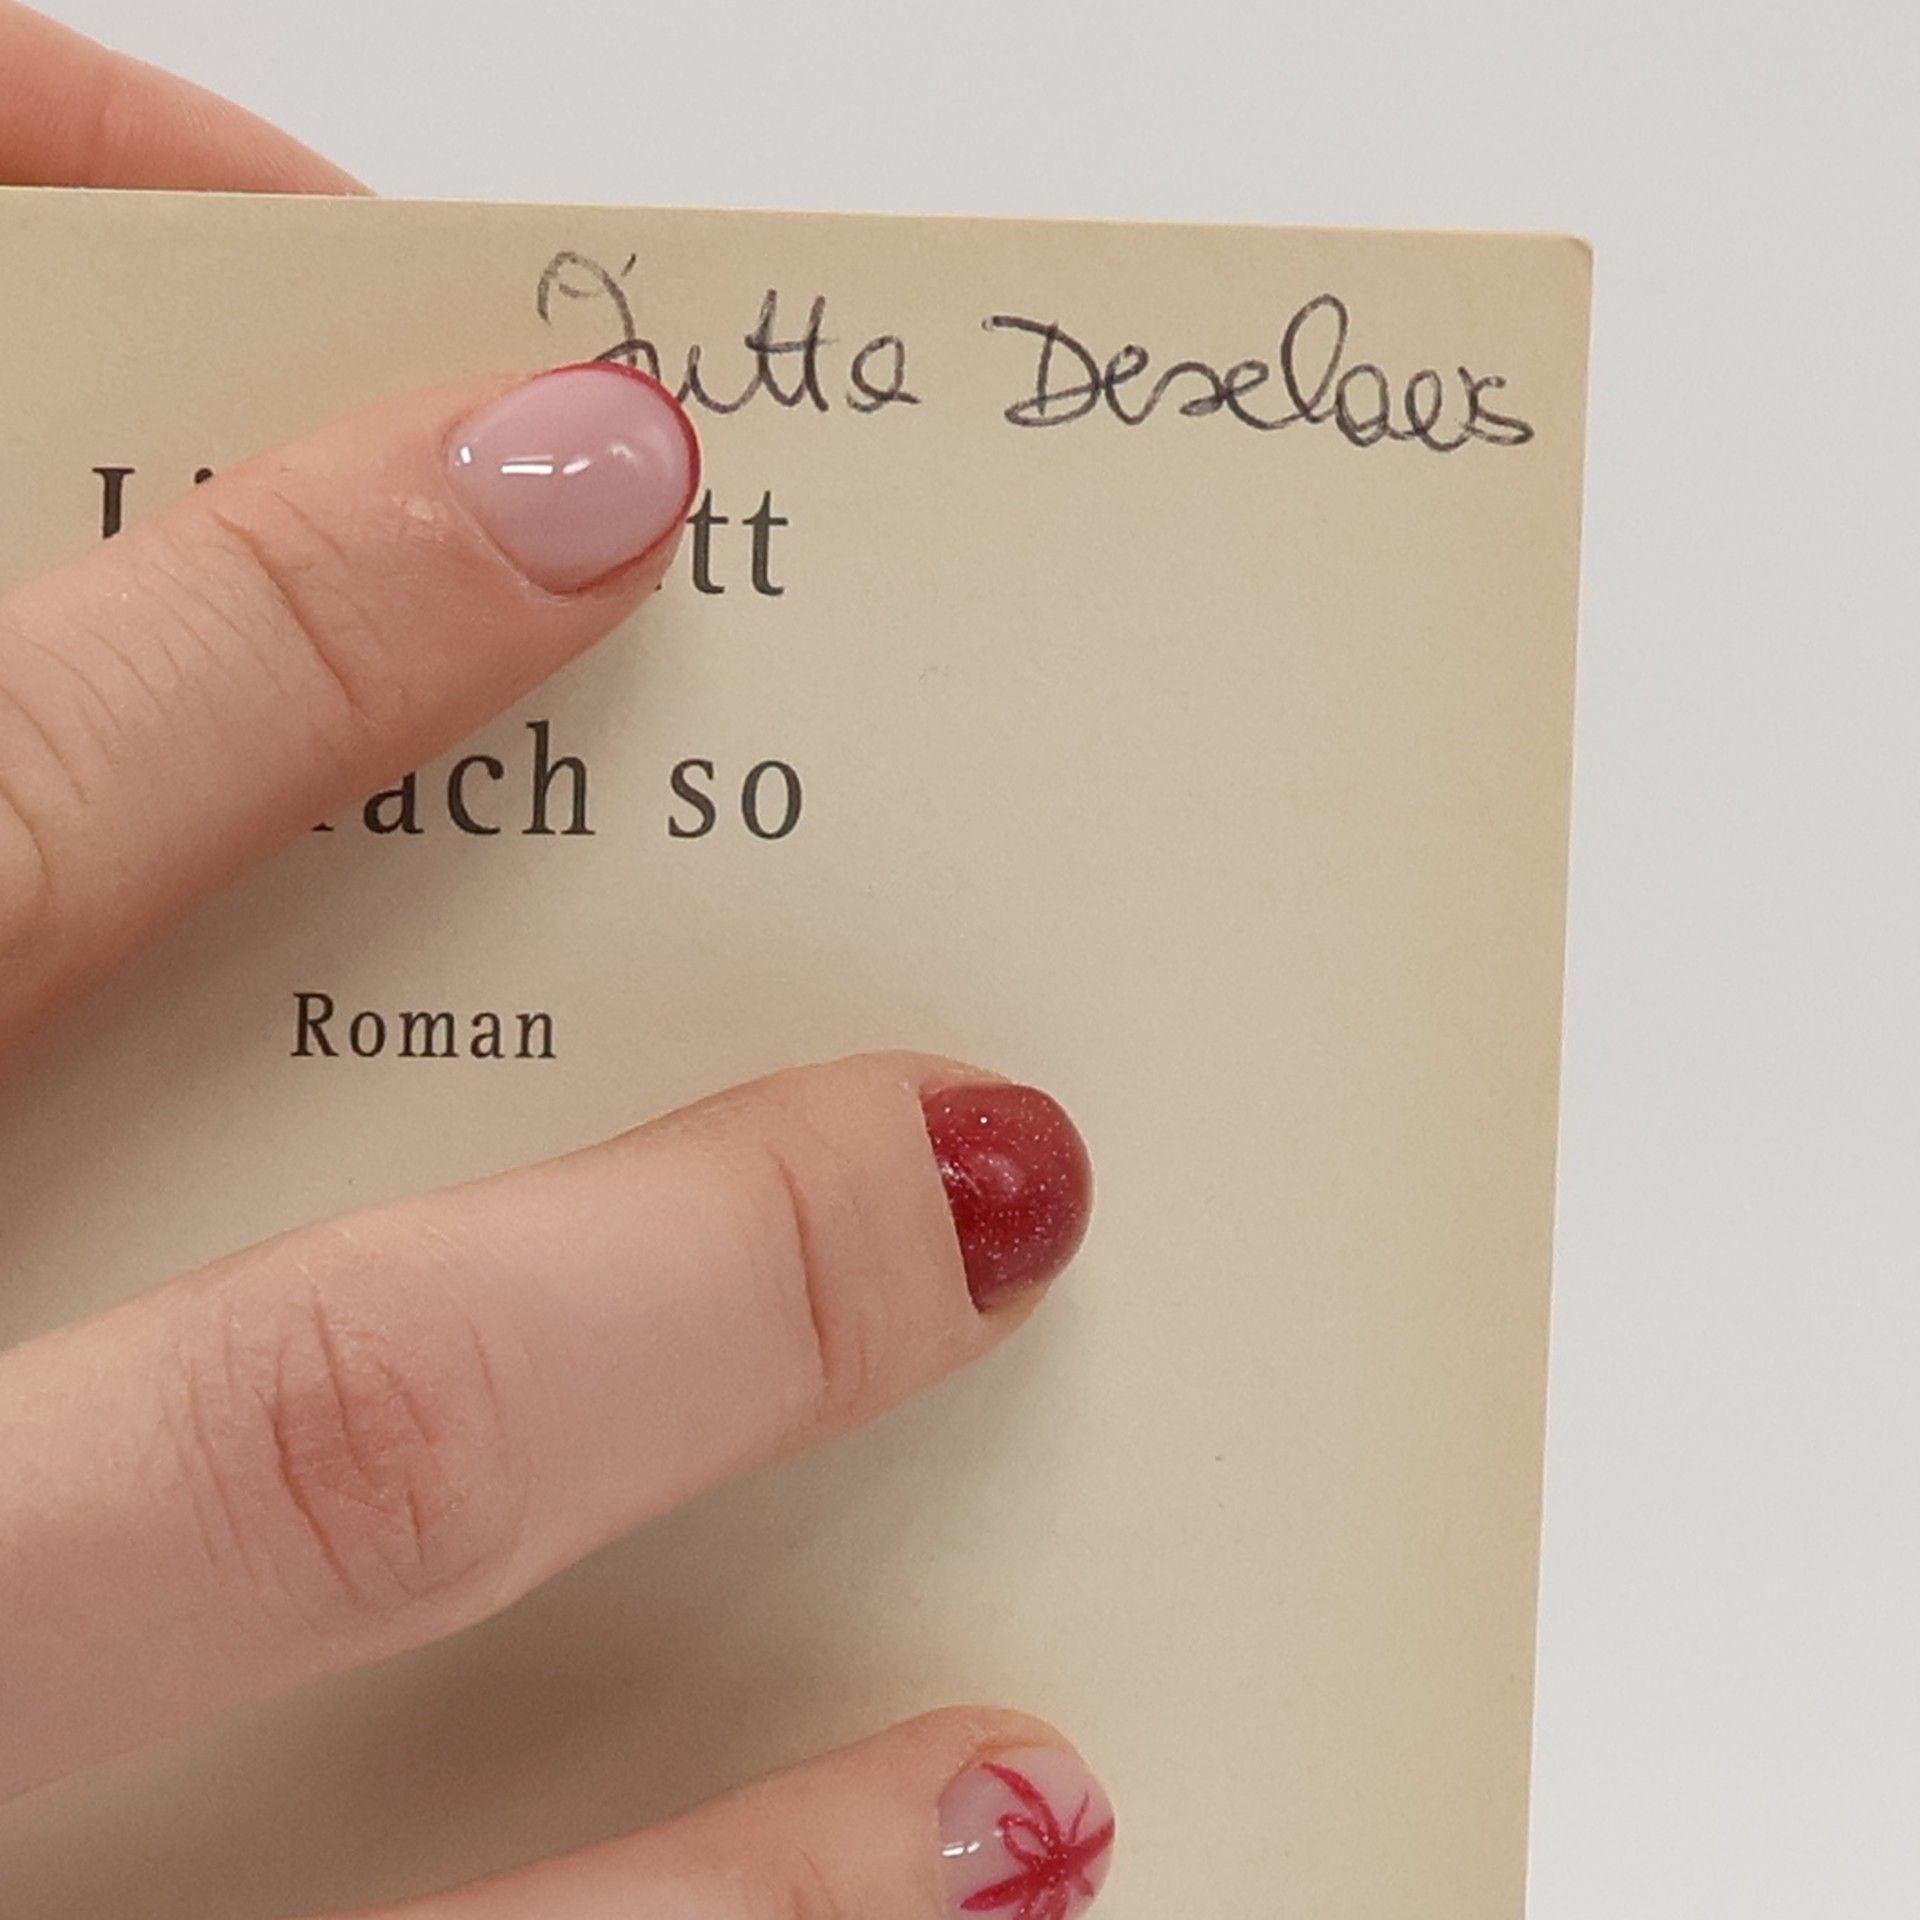 Jutta Deselaers
tt
ach so
Roman